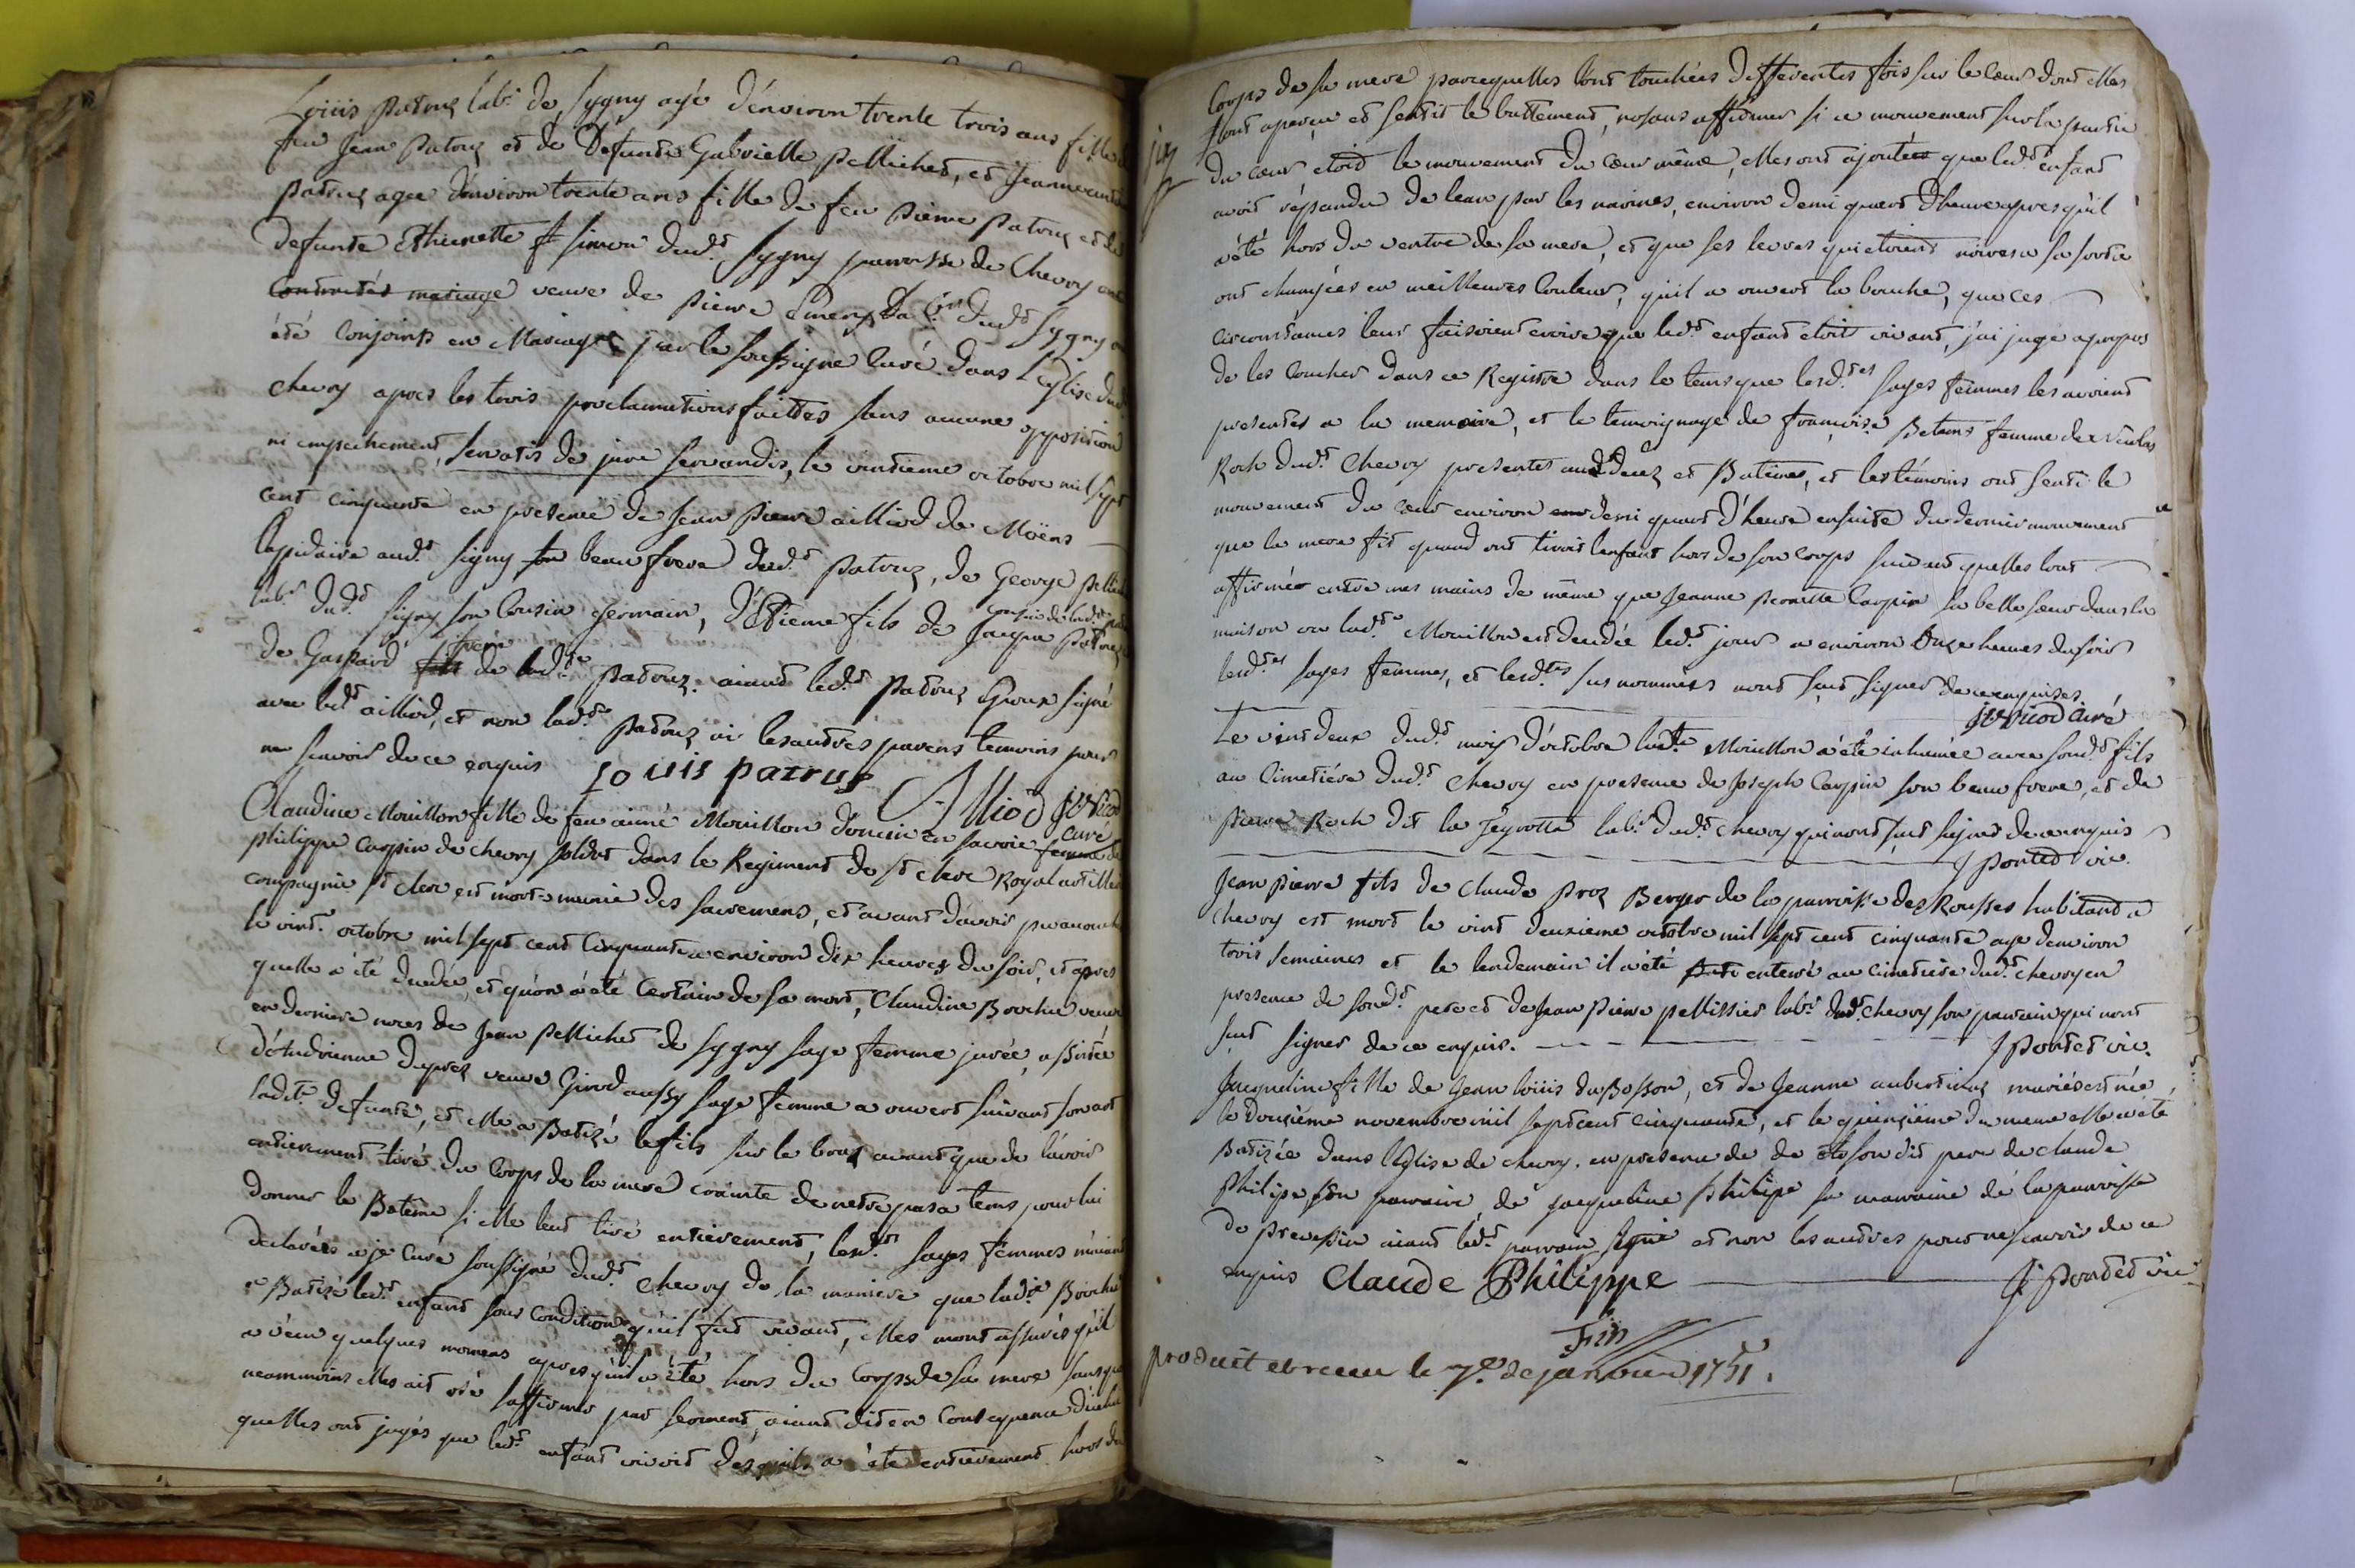 Loüis patruz lab.r de sygny agé d'environ trente trois ans fils de
feu Jean Patruz et de Defunte Gabrielle Pellichet, et Jeanne
patruz agee d'environ trente ans fille de feu pierre patruz et de
Defunte Ethienette dud.t sygny parroisse de Chevry
contractés mariage veuve de pierre Emery dud.t sygny
été conjoints en Mariage par le soussigné curé dans l'Eglise dud.t
chevry apres les trois proclamations faittes sans aucune opposition
ni empechement, servatis de jure servandis, le vintieme octobre mil sept
cent cinquante en presence de Jean Pierre alliod de Moëns
lapidaire aud.t signy beau frere dud.t patruz, de George pellichet
lab.r dud.t signy son cousin germain, d'Etienne fils de Jaque patruz cousin de lad.te
de Gaspard fils frere de lad.te patruz. aiant led.t patruz Epoux signé
avec led.t alliod, et non lad.te patruz ni les autres parens temoins pour
ne scavoir de ce enquis Louis patruz Alliod J: Nicod curé
Claudine Mouillon fille de feu aimé Mouillon d'oucin en savoie femme de
philippe carpin de chevry soldat dans le Regiment de st clere Royal artillerie
compagnie st clere est morte munie des sacremens, et avant d'avoir pu accoucher
le vint.e octobre mil sept cent cinquante a environ dix heures du soir, et apres
quelle a été decedée, et qu'on a été certain de sa mort, Claudine Brochu veuve
en derniere noces de Jean Pellichet de sygny sage femme jurée, assistée
d'Andrienne depraz veuve Girod aussy sage femme a ouvert suivant son art
ladite defunte, et elle a Batizé le fils sur le bras avant que de l'avoir
entierement tiré du corps de la mere crainte de n'etre pas a tems pour lui
donner le Batême si elle leut tiré entierement, lesd.tes sages femmes m'aiant
declarées a je curé soussigné dud.t chevry de la maniere que lad.te Brochu
a Batizé led.t enfant sous condition qu'il fut vivant, elles m'ont assurés qu'il
a vécu quelques momens apres qu'il a été hors du corps de sa mere sans que
neammoins elles ait osé l'affirmer par serment, aiant dit en consequence d'icelui
quelles ont jugés que led.t enfant vivoit dès qu'il a été entierement hors du
corps de sa mere parcequelles l'ont touchées differentes fois sur le cœur dont elles
s'ont aperçu et sentit le battement, n'osans affirmer si ce mouvement sur la partie
du cœur etoit le mouvement du cœur même, elles ont ajoutées que led.t enfant
avoit répandu de l'eau par les narines, environ demi quart d'heure apres qu'il
a été hors du ventre de sa mere, et que ses levres qui etoient noires a sa sortie
ont changées en meilleures couleurs, qu'il a ouvert la bouche, que ces
circonstances leur faisoient croire que led.t enfant etoit vivant, j'ai jugé apropos
de les coucher dans ce Registre dans le tems que lesd.tes sages femmes les avoient
presentes a la memoire, et le temoignage de françoise Betems femme de Nicolas
Roch dud.t Chevry presentes aud.t decez et Batêmes, et les témoins ont senti le
mouvement du cœur environ demi quart d'heure ensuite du dernier mouvement
que la mere fit quand ont tiroit l'enfant hors de son corps suivant quelles l'ont
affirmé entre mes mains de même que Jeanne pernette Carpin sa belle sœur dans la
maison ou lad.te Mouillon est decedée led.t jour a environ onze heures du soir
lesd.tes sages femmes, et lesd.tes sus nommées n'ont seut signer de ce enquises
J: Nicod curé
Le vint deux dud.t mois d'octobre lad.te Mouillon a été inhumée avec sond.t fils
au cimetiére dud.t Chevry en presence de Joseph Carpin son beau frere, et de
Pierre Roch dit la Jeyrotta lab.r dud.t chevry qui n'ont seut signer de ce enquis
J ponted vic.
Jean pierre fils de claude proz Berger de la parroisse des Rousses habitant a
chevry est mort le vint deuxieme octobre mil sept cent cinquante agé d'environ
trois semaines et le lendemain il a été enterré au cimetiere dud.t chevry en
presence de sond.t pere et de Jean pierre pellissier lab.r dud.t chevry son parrain qui n'ont
seut signer de ce enquis. J ponted vic.
Jacqueline fille de Jean loüis duBosson, et de Jeanne aubertinaz mariés est née
le douzième novembre mil sept cent cinquante, et le quinzième du meme elle a été
Batizée dans l'Eglise de chevry. en presence de de sondit pere de claude
philipe son parrain, de Jacqueline philipe sa marraine de la parroisse
de prevessin aiant led.t parrain signé et non les autres pour ne scavoir de ce
enquis Claude Philippe J: ponted vic
Fin
produit et receu le 7.e de janvier 1751.